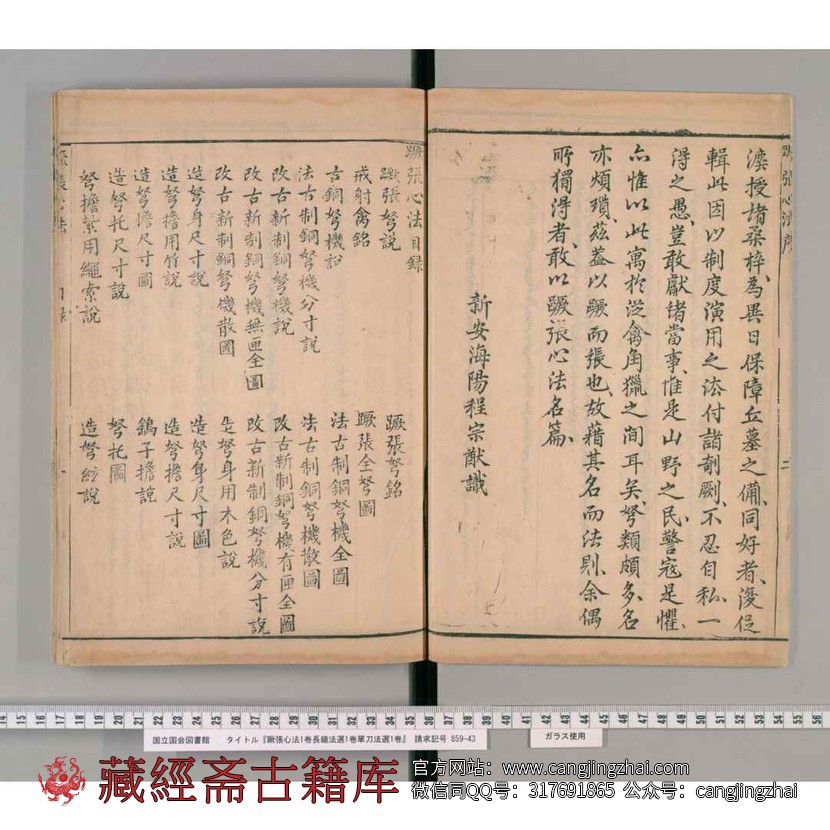 蹶張心法序
二
濅授諸桑梓、為異日保障丘墓之備、同好者、復促
輯此因以制度演用之法付諸剞劂、不忍自私、一
得之愚、豈敢獻諸當事、惟是山野之民、警寇是懼、
亦惟以此寓於從禽角獵之間耳矣、弩類頗多、名
亦煩瑣、茲蓋以蹶而張也、故藉其名而法則、余偶
所獨淂者、敢以蹶張心法名篇、
新安海陽程宗猷識
蹶張心法目錄
蹶張弩說
蹶張弩銘
戒射禽銘
蹶張全弩圖
古銅弩機說
法古制銅弩機全圖
法古制銅弩機分寸說
法古制銅弩機散圖
改古新制銅弩機說
改古新制銅弩機有匣全圖
改古新制銅弩機無匣全圖
改古新制銅弩機分寸說
改古新制銅弩機散圖
造弩身用木色說
造弩身尺寸說
造弩身尺寸圖
造弩擔用竹說
造弩擔尺寸說
造弩擔尺寸圖
鴿子擔說
造弩托尺寸說
弩托圖
弩擔紮用繩索說
造弩絃說
蹶張心法
目錄
一
14 15 16 17 18 19 20 21 22 23 24 25 26 27 28 29 30 31 32 33 34 35 36 37 38 39 40 41 42 43 44 45 46 47 48 49 50 51 52 53 54 55 56
国立国会図書館 タイトル『蹶張心法1巻長鎗法選1巻單刀法選1巻』 請求記号 859-43
ガラス使用
藏經斋古籍库
官方网站：www.cangjingzhai.com
微信同QQ号：317691865 公众号：cangjingzhai